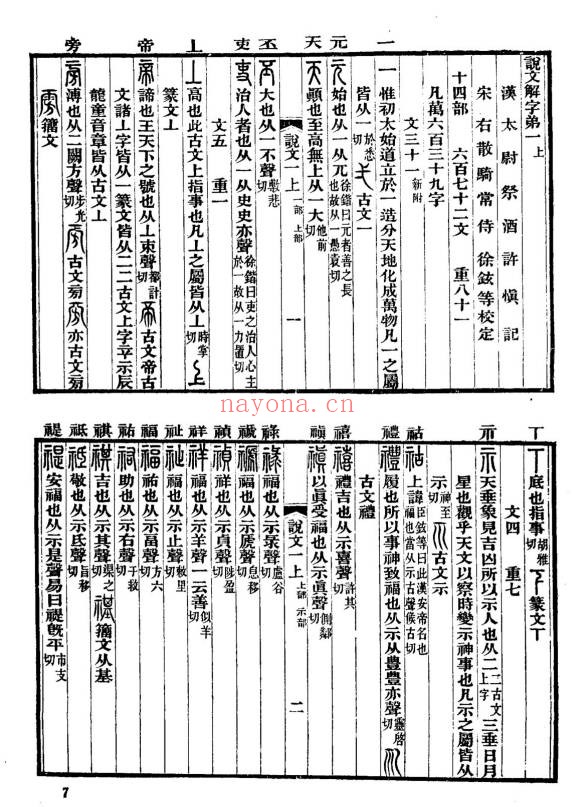 說文解字弟一上
漢太尉祭酒許愼記
宋右散騎常侍徐鉉等校定
十四部 六百七十二文 重八十一
凡萬六百三十九字
文三十一新附
一 惟初太始道立於一造分天地化成萬物凡一之屬
皆从一於悉切 古文一
元 始也从一从兀徐鍇曰元者善之長也故从一愚袁切
天 顚也至高無上从一大他前切
說文一上 一部 上部 一
丕 大也从一不聲敷悲切
吏 治人者也从一从史史亦聲徐鍇曰吏之治人心主於一故从一力置切
文五 重一
丄 高也此古文上指事也凡丄之屬皆从丄時掌切 上
篆文丄
帝 諦也王天下之號也从丄朿聲都計切 古文帝古
文諸丄字皆从一篆文皆从二二古文上字䇂示辰
龍童音章皆从古文丄
旁 溥也从二闕方聲步光切 古文㫄 亦古文㫄
籒文
丅 底也指事胡雅切 篆文丅
文四 重七
示 天垂象見吉凶所以示人也从二二古文上字三垂日月
星也觀乎天文以察時變示神事也凡示之屬皆从
示神至切 古文示
祜 上諱臣鉉等曰此漢安帝名也福也當从示古聲候古切
禮 履也所以事神致福也从示从豊豊亦聲靈啓切
古文禮
禧 禮吉也从示喜聲許其切
禛 以眞受福也从示眞聲側鄰切
說文一上 上部 示部 二
祿 福也从示彔聲盧谷切
禠 福也从示虒聲息移切
禎 祥也从示貞聲陟盈切
祥 福也从示羊聲一云善似羊切
祉 福也从示止聲敕里切
福 祐也从示畐聲方六切
祐 助也从示右聲于救切
祺 吉也从示其聲渠之切 籒文从基
祗 敬也从示氐聲旨移切
禔 安福也从示是聲易曰禔旣平市支切
7
nayona.cn